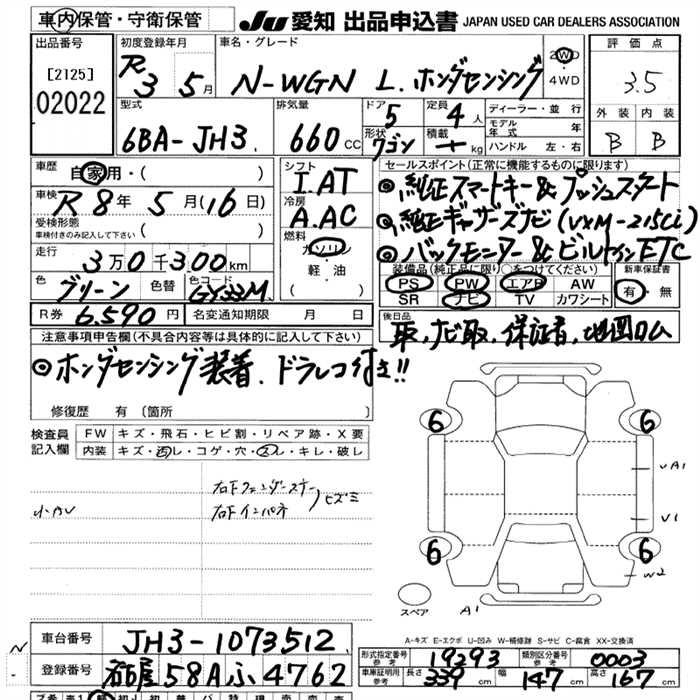 車内保管・守衛保管
JU 愛知 出品申込書 JAPAN USED CAR DEALERS ASSOCIATION
出品番号
[2125]
02022
初度登録年月
R 3 5月
車名・グレード
N-WGN L.ホンダセンシング
2WD
4WD
評価点
3.5
外装 内装
B B
型式
6BA-JH3.
排気量
660cc
ドア 5
形状 ワゴン
定員 4人
積載 kg
ディーラー・並行
モデル年式 年
ハンドル 左・右
車歴
自家用・( )
車検
R8年 5月(16日)
受検形態
車検付きのみ記入して下さい ( )
走行
3万0千300km
色 グリーン 色替 色コード GY33M.
R券 6.590円 名変通知期限 月 日
シフト
I.AT
冷房
A.AC
燃料
ガソリン
軽油
( )
セールスポイント(正常に機能するものに限ります)
◎純正スマートキー&プッシュスタート
◎純正ギャザーズナビ(VXM-215Ci)
◎バックモニター&ビルトインETC
装備品(純正品に限り○をつけてください)
PS PW エアB AW
SR ナビ TV カワシート
新車保証書
有・無
後日品
取,ナビ取,保証書,地図ロム
注意事項申告欄(不具合内容等は具体的に記入して下さい)
◎ホンダセンシング装着.ドラレコ付き!!
修復歴 有 〔箇所 〕
検査員記入欄
FW キズ・飛石・ヒビ割・リペア跡・X要
内装 キズ・汚レ・コゲ・穴・スレ・キレ・破レ
小AV
右下インパネ
ヒズミ
6 6
6 6
VA1
V1
W2
A1
スペア
A-キズ E-エクボ U-凹み W-補修跡 S-サビ C-腐食 XX-交換済
車台番号 JH3-1073512
登録番号 名古屋 58Aふ4762
形式指定番号 参考 19293 類別区分番号 参考 0003
車庫証明用 参考 長さ 339cm 幅 147cm 高さ 167cm